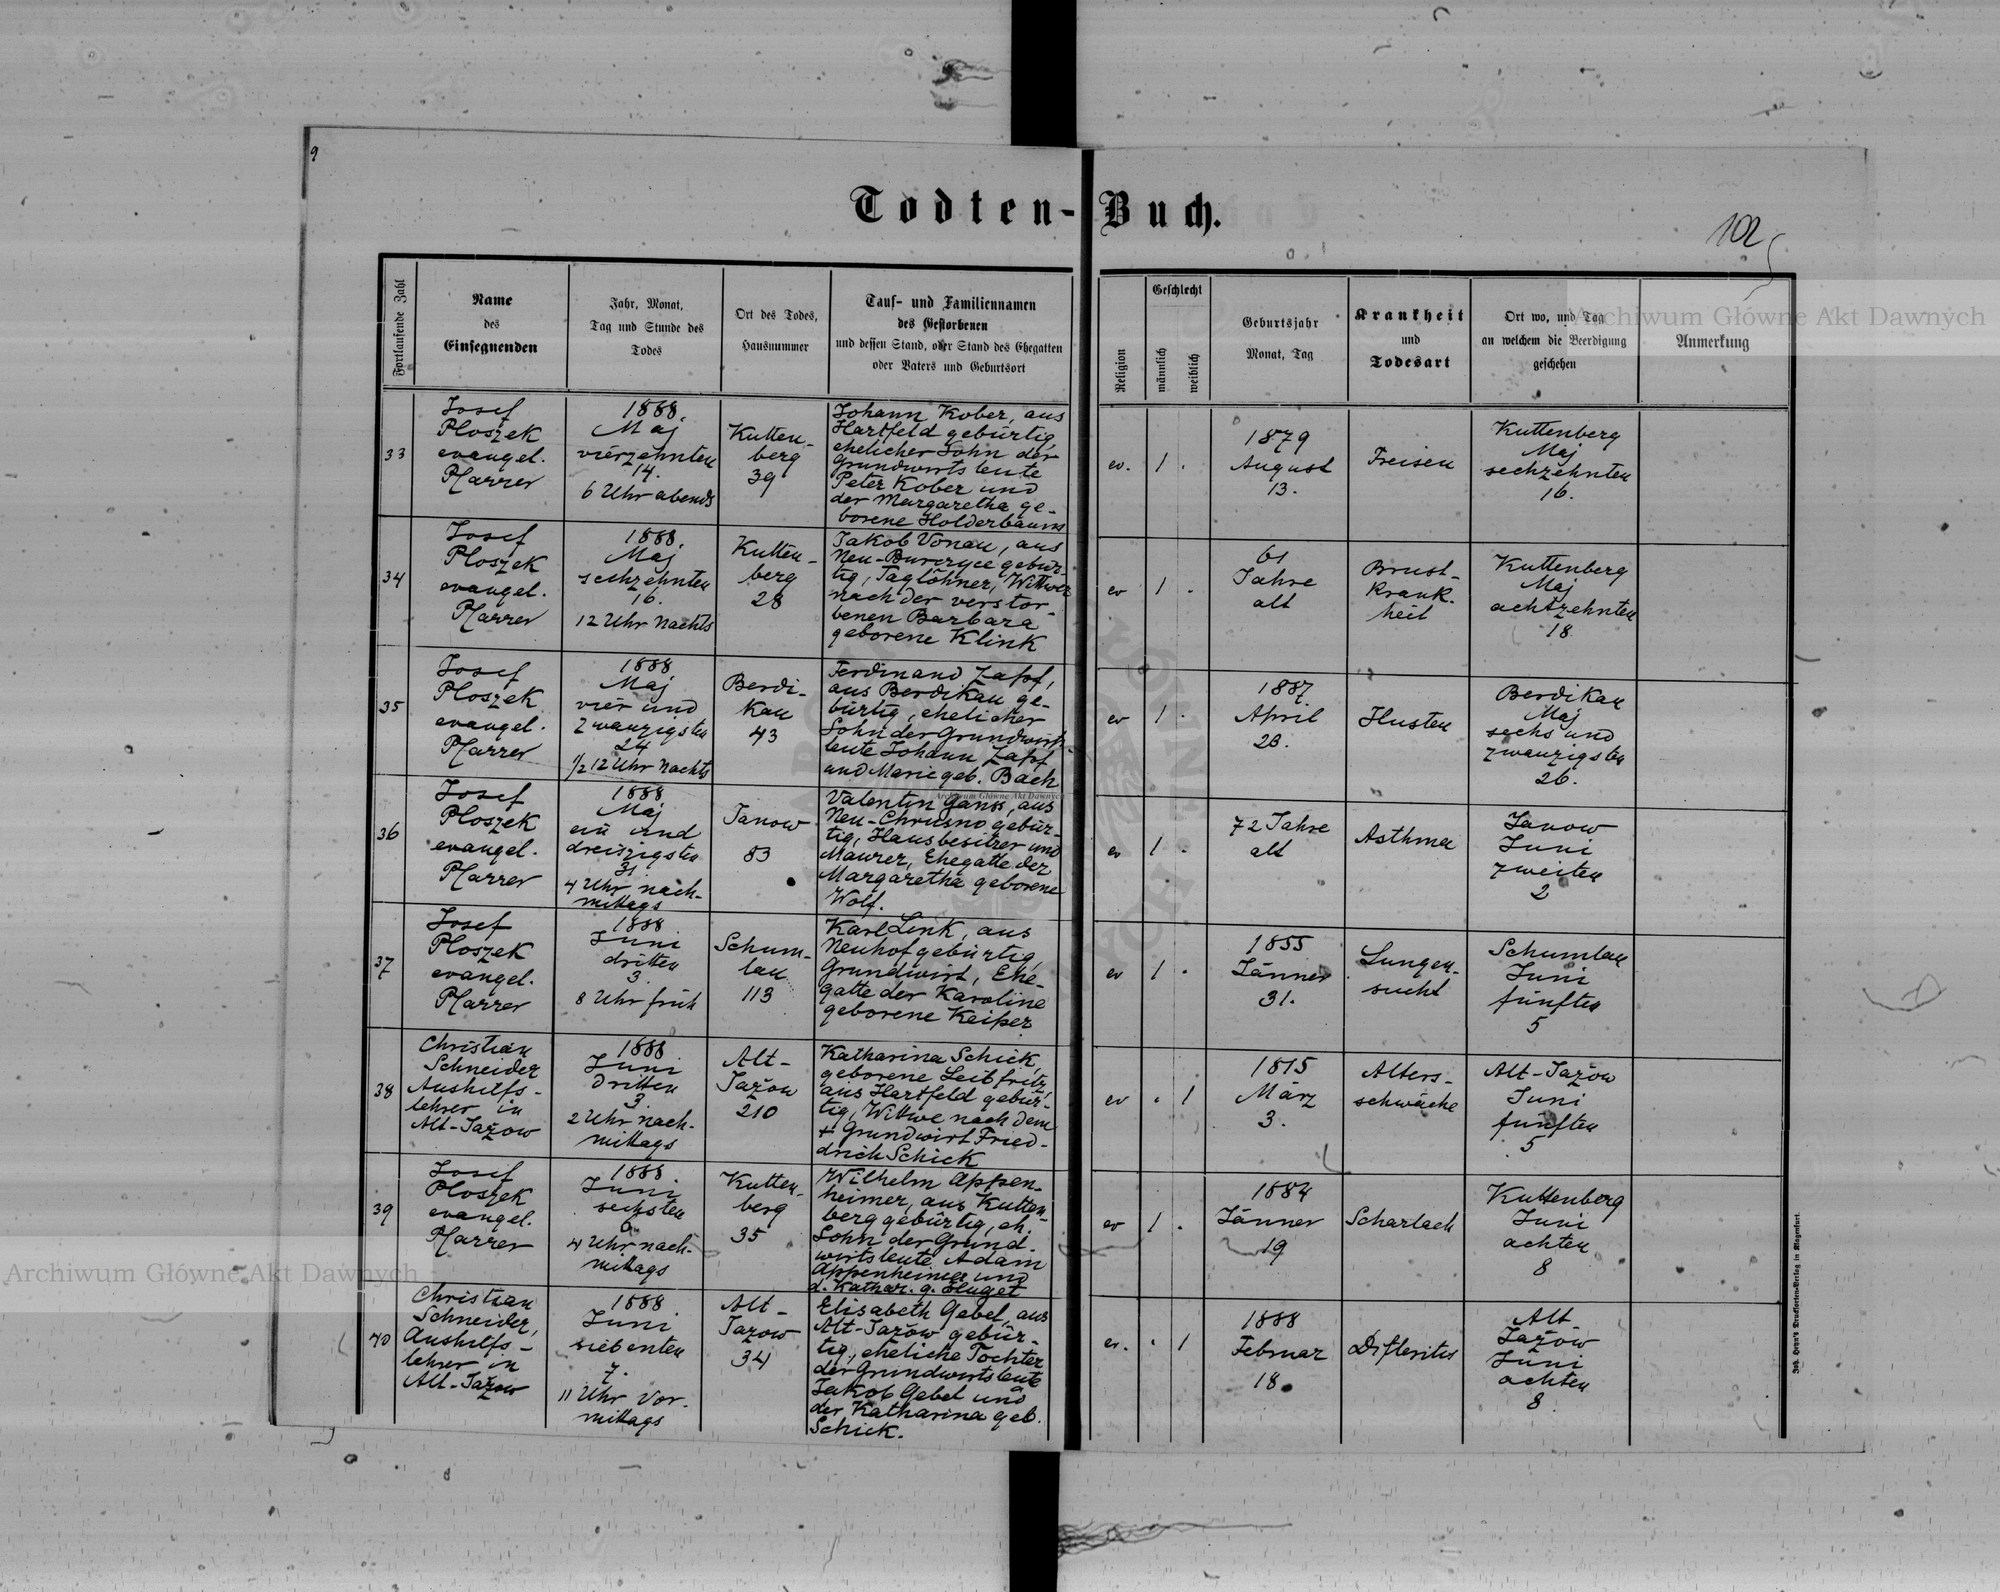 9
Todten-Buch.
102
Fortlaufende Zahl
Name
des
Einsegnenden
Jahr, Monat,
Tag und Stunde des
Todes
Ort des Todes,
Hausnummer
Tauf- und Familiennamen
des Gestorbenen
und dessen Stand, oder Stand des Ehegatten
oder Vaters und Geburtsort
Religion
Geschlecht
männlich
weiblich
Geburtsjahr
Monat, Tag
Krankheit
und
Todesart
Ort wo, und Tag
an welchem die Beerdigung
geschehen
Anmerkung
Archiwum Główne Akt Dawnych
33
Josef
Ploszek
evangel.
Pfarrer
1888.
Maj
vierzehnten
14.
6 Uhr abends
Kutten-
berg
39
Johann Kober, aus
Hartfeld gebürtig,
ehelicher Sohn der
Grundwirtsleute
Peter Kober und
der Margaretha ge-
borene Holderbaum
ev.
1
.
1879
August
13.
Freisen
Kuttenberg
Maj
sechzehnten
16.
34
Josef
Ploszek
evangel.
Pfarrer
1888.
Maj
sechzehnten
16.
12 Uhr Nachts
Kutten-
berg
28
Jakob Vonau, aus
Neu-Burczyce gebür-
tig, Taglöhner, Wittwer
nach der verstor-
benen Barbara
geborene Klink
ev
1
.
61
Jahre
alt
Brust-
krank-
heit
Kuttenberg
Maj
achtzehnten
18
35
Josef
Ploszek
evangel.
Pfarrer
1888
Maj
vier und
zwanzigsten
24
1/2 12 Uhr Nachts
Berdi-
kau
43
Ferdinand Zapf,
aus Berdikau ge-
bürtig, ehelicher
Sohn der Grundwirts-
leute Johann Zapf
und Marie geb. Bach
ev
1
.
1887.
April
23.
Husten
Berdikau
Maj
sechs und
zwanzigsten
26.
36
Josef
Ploszek
evangel.
Pfarrer
1888
Maj
ein und
dreiszigsten
31.
4 Uhr nach-
mittags
Janow
83
Archiwum Główne Akt Dawnych
Valentin Ganss, aus
Neu-Chrusno gebür-
tig, Hausbesitzer und
Maurer, Ehegatte der
Margaretha geborene
Wolf.
ev
1
.
72 Jahre
alt
Asthma
Janow
Juni
zweiten
2
37
Josef
Ploszek
evangel.
Pfarrer
1888
Juni
dritten
3.
8 Uhr früh
Schum-
lau
113
Karl Link, aus
Neuhof gebürtig,
Grundwirt, Ehe-
gatte der Karoline
geborene Keiper
ev
1
.
1855
Jänner
31.
Lungen-
sucht
Schumlau
Juni
fünften
5
38
Christian
Schneider
Aushilfs-
lehrer in
Alt-Jažow
1888.
Juni
dritten
3.
2 Uhr nach-
mittags
Alt-
Jažow
210
Katharina Schick,
geborene Leibfritz,
aus Hartfeld gebür-
tig, Wittwe nach dem
+ Grundwirt Fried-
drich Schick
ev
.
1
1815
März
3.
Alters-
schwäche
Alt-Jažow
Juni
fünften
5
39
Josef
Ploszek
evangel.
Pfarrer
1888.
Juni
sechsten
6
4 Uhr nach-
mittags
Kutten-
berg
35
Wilhelm Appen-
heimer, aus Kutten-
berg gebürtig, eh.
Sohn der Grund-
wirtsleute Adam
Appenheimer und
d. Kathar. g. Huget
ev
1
.
1884
Jänner
19
Scharlach
Kuttenberg
Juni
achten
8
Archiwum Główne Akt Dawnych
40
Christian
Schneider,
Aushilfs-
lehrer in
Alt-Jažow
1888.
Juni
siebenten
7.
11 Uhr Vor-
mittags
Alt-
Jažow
34
Elisabeth Gebel, aus
Alt-Jažow gebür-
tig, eheliche Tochter
der Grundwirtsleute
Jakob Gebel und
der Katharina geb.
Schick.
ev.
.
1
1888
Februar
18
Difteritis
Alt-
Jažow
Juni
achten
8.